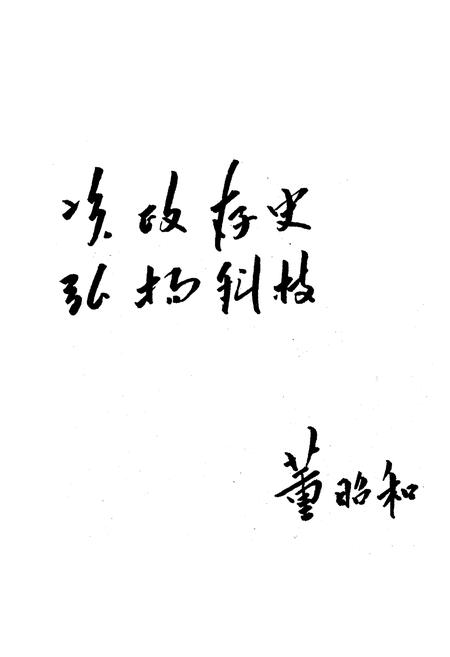 资政存史
弘扬科技
董昭和